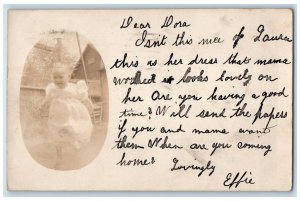 Dear Dora
Isn't this nice of Laura
this is her dress that mama
worked it looks lovely on
her Are you having a good
time? Will send the papers
if you and mama want
them When are you coming
home? Lovingly
Effie